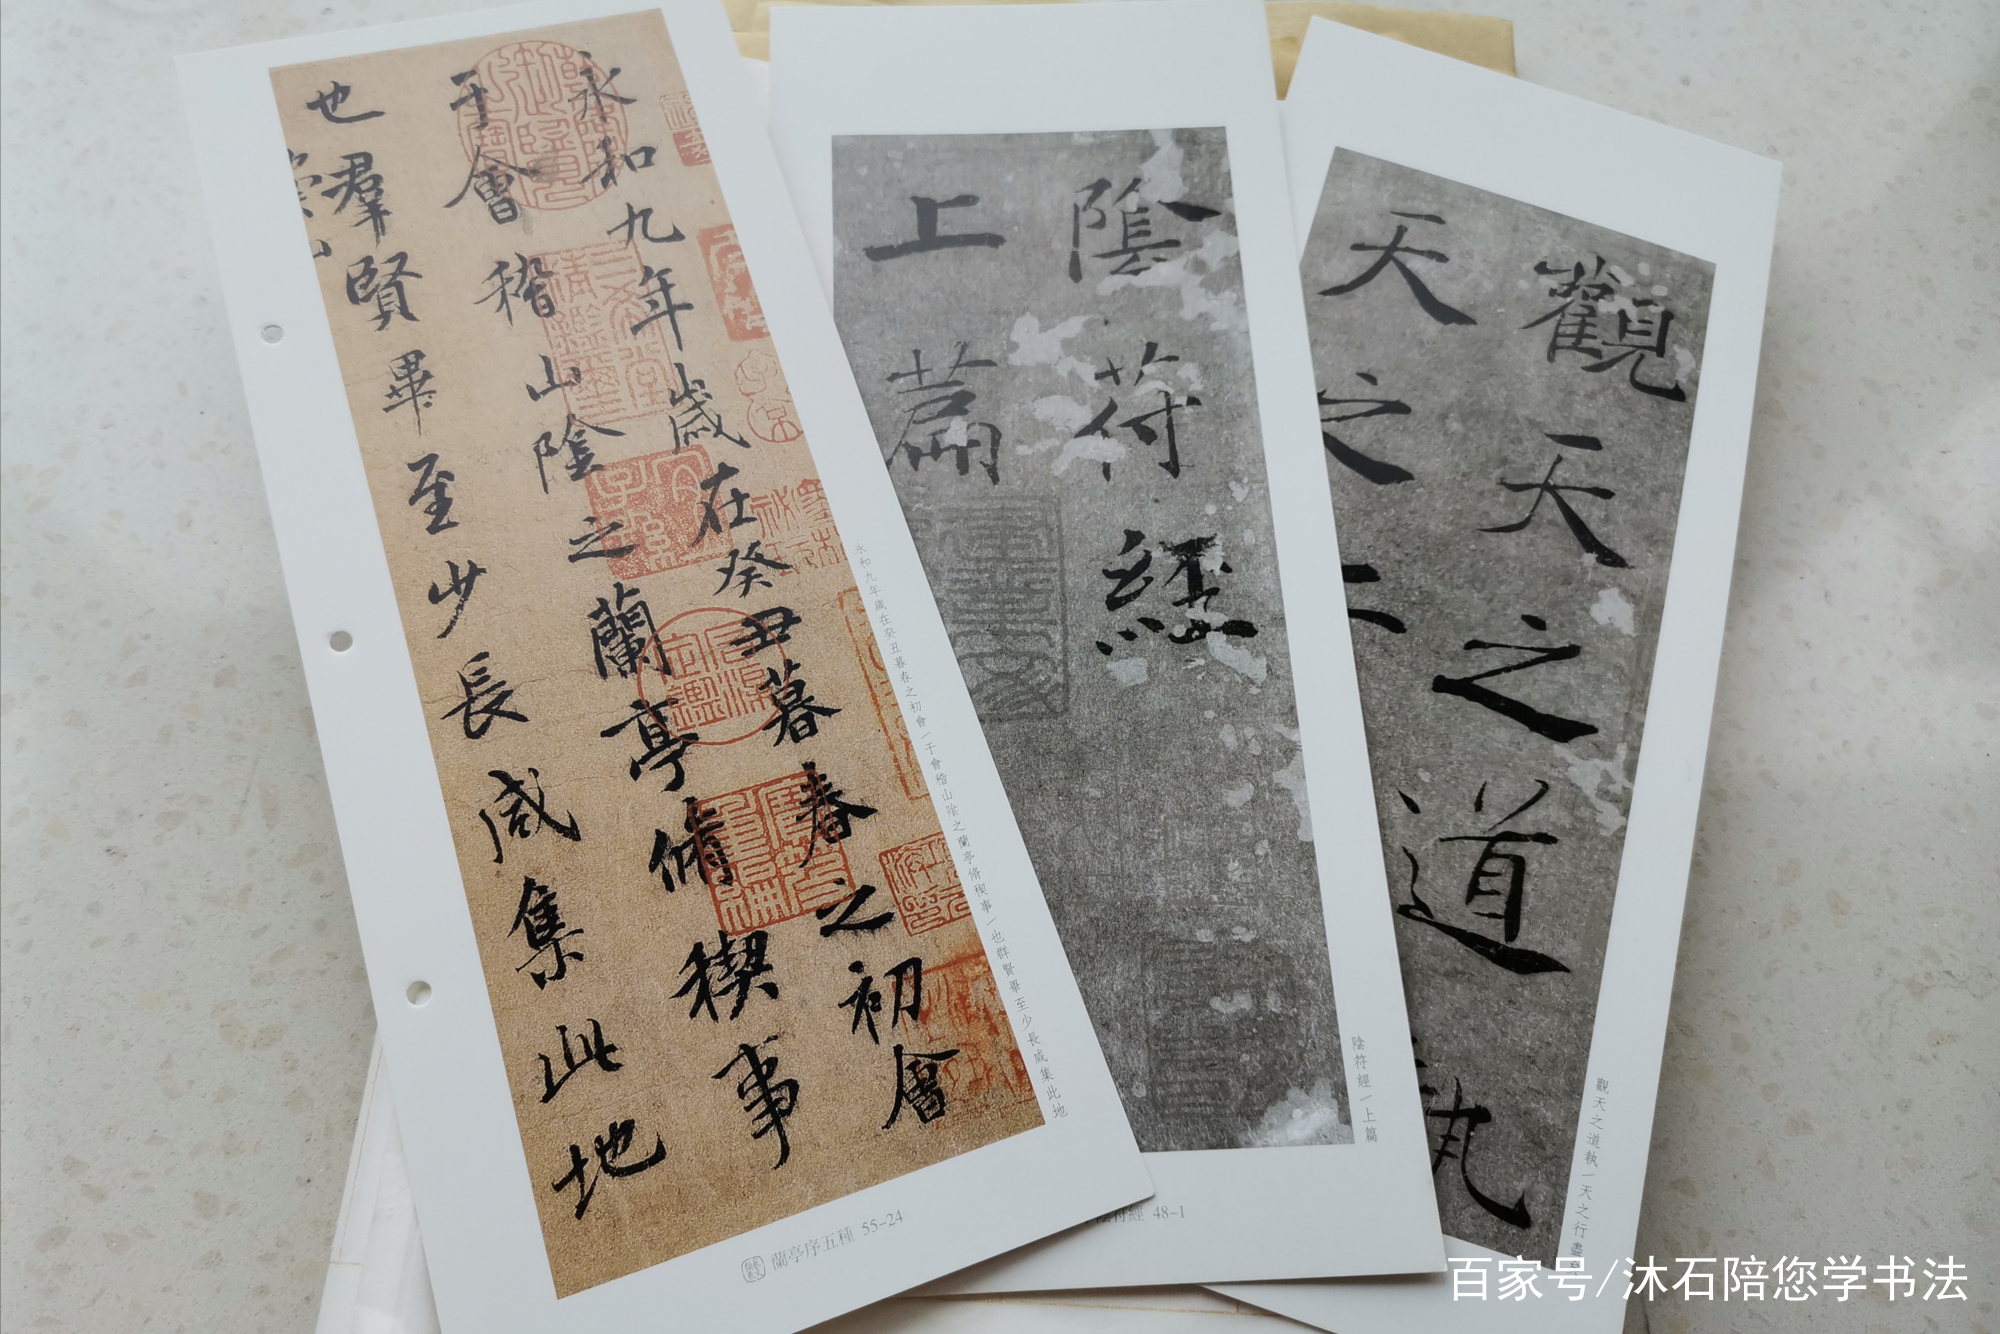 永和九年歲在癸丑暮春之初會
于會稽山陰之蘭亭脩稧事
也羣賢畢至少長咸集此地
永和九年歲在癸丑暮春之初會一于會稽山陰之蘭亭脩稧事一也群賢畢至少長咸集此地
蘭亭序五種 55-24
陰符經
上篇
陰符經一上篇
符經 48-1
觀天之道執
天之
觀天之道執一天之行盡
百家号/沐石陪您学书法